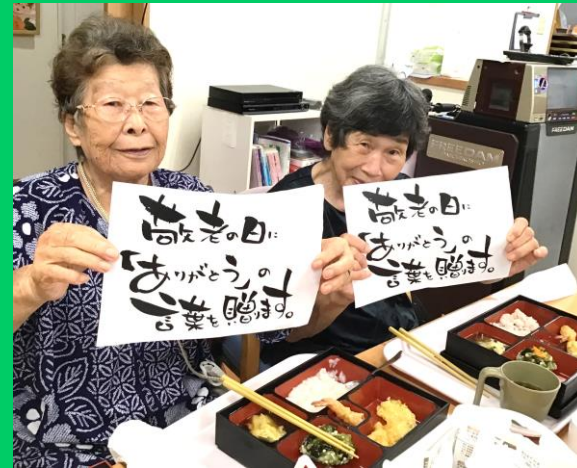 敬老の日に
「ありがとう」の
言葉を贈ります。
敬老の日に
「ありがとう」の
言葉を贈ります。
FREEDAM
FREEDAM